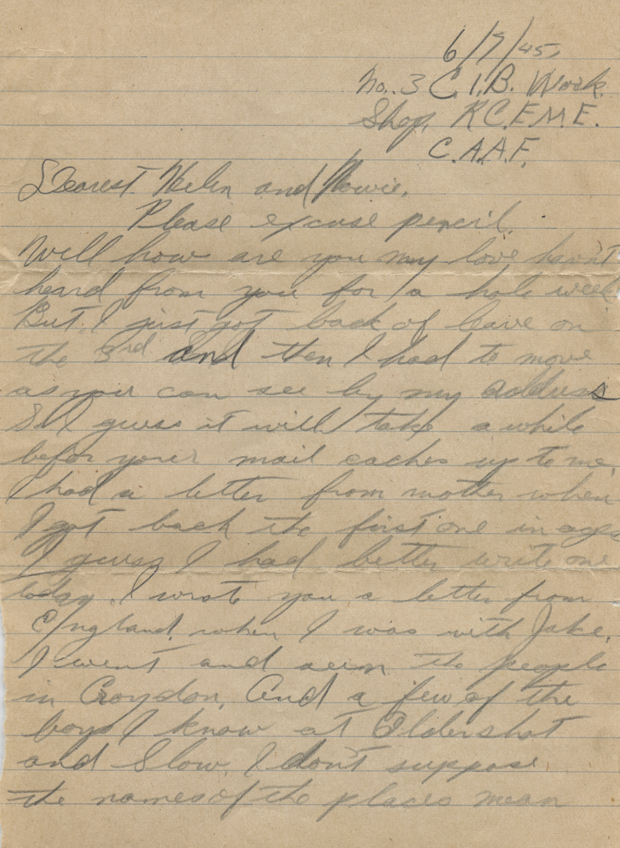 6/7/45.
No. 3 C.I.B. Work
Shop, R.C.E.M.E.
C.A.A.F.
Dearest Helen and Howie,
Please excuse pencil.
Well how are you my love havn't
heard from you for a hole week
But I just got back of leave on
the 3rd and then I had to move
as your can see by my address
So I guess it will take a while
befor your mail caches up to me.
I had a letter from mother when
I got back the first one in ages
I guess I had better write one
today. I wrote you a letter from
England. when I was with Jake.
I went and seen the people
in Croydon. And a few of the
boys I know at Eldershot
and Slow. I don't suppose
the names of the places mean